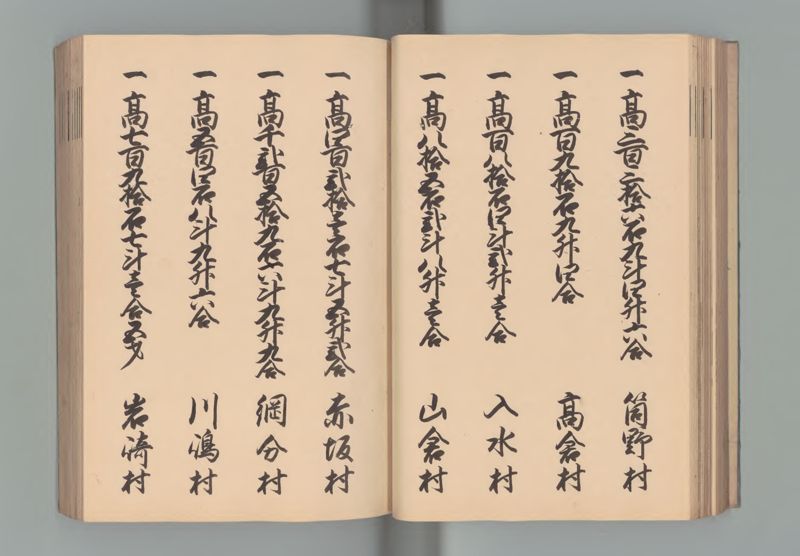 一高三百三拾六石九斗四升六合 筒野村
一高百九拾石九升四合 高倉村
一高百八拾石四斗弐升壱合 入水村
一高八拾五石弐斗八升壱合 山倉村
一高四百弐拾壱石七斗五升弐合 赤坂村
一高千弐百五拾九石六斗九升九合 綱分村
一高五百四石八斗九升六合 川嶋村
一高七百九拾石七斗壱合五夕 岩崎村